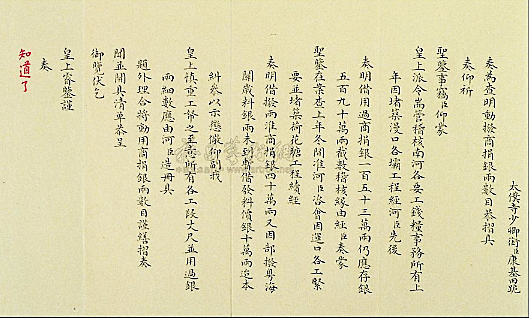 太僕寺少卿銜臣康基田跪
奏為查明動撥商捐銀兩數目恭摺具
奏仰祈
聖鑒事竊臣仰蒙
皇上派令嵩管稽核南河各要工錢糧事務所有上
年因堵築漫口各壩工程經河臣先後
奏明借用過商捐銀二百五十三萬兩仍應存銀
五百九十萬兩截數稽核緣由經臣奏蒙
聖鑒在案查上年冬間准河臣咨會因運口各工緊
要並堵築荷花塘工程續經
奏明借撥兩淮商捐銀四十萬兩又因部撥粵海
關歲料銀兩未到暫借發料價銀十萬兩迄未
糾參以示懲儆仰副我
皇上慎重工帑之至意所有各工段大尺並用過銀
兩細數應由河臣造冊具
題外理合將動用商捐銀兩數目謹繕摺奏
聞並開具清單恭呈
御覽伏乞
皇上睿鑒謹
奏
知道了